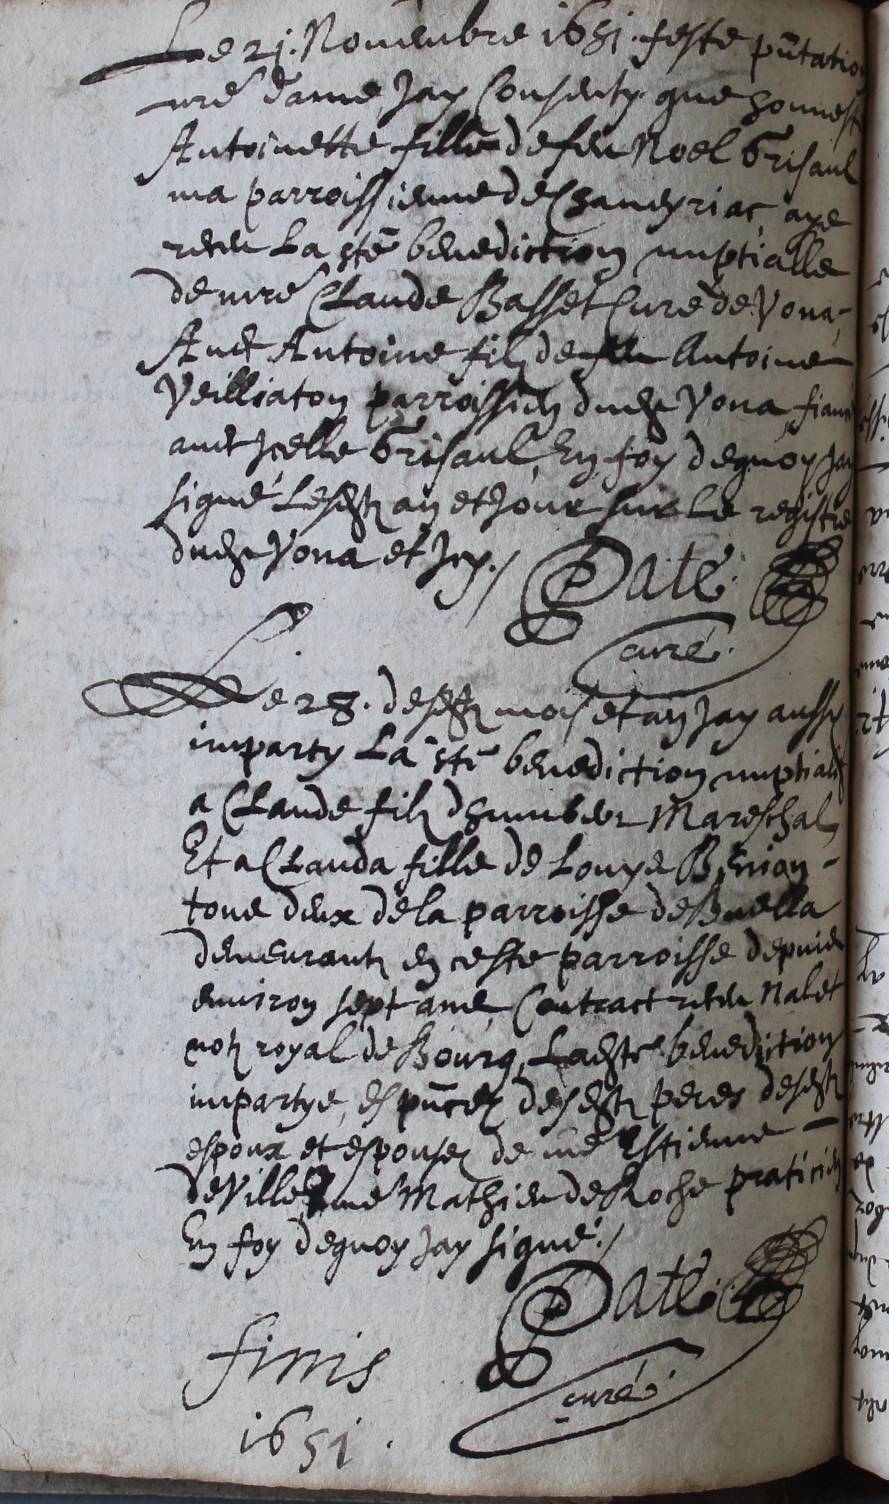 Le 21. Novembre 1651. feste pñtatio
nre dame, Jay Consenty que honnest
Antoinette fille de feu Noel Grisaul
ma parroissienne de Chaveyriac, aye
receu La ste benediction nuptialle
de mre Claude Basset Curé de Vona-
Avec Antoine filz de feu Antoine
Veilliaton parroissien dudt Vona, fiancé
avec Jcelle Grisaul, En foy dequoy Jay
signé Lesdtz an et Jour sur Le registre
dudt Vona et Jcy./
Paté
curé
Le 28. desdtz mois et an Jay aussy
imparty La ste benediction nuptiale
a Claude filz dhumbert Mareschal
Et a Clauda fille de Louys
tous deux de la parroisse de Buella
demeurantz en ceste parroisse depuis
environ sept ans, Contract receu Nalet
notz royal de Bourg, Ladte ste benediction
impartye, es pñces desdtz peres desdtz
espoux et espouse, de me Estienne -
deVilles me Mathieu deRoche praticien
En foy dequoy Jay signé./
Paté
curé
finis
1651.